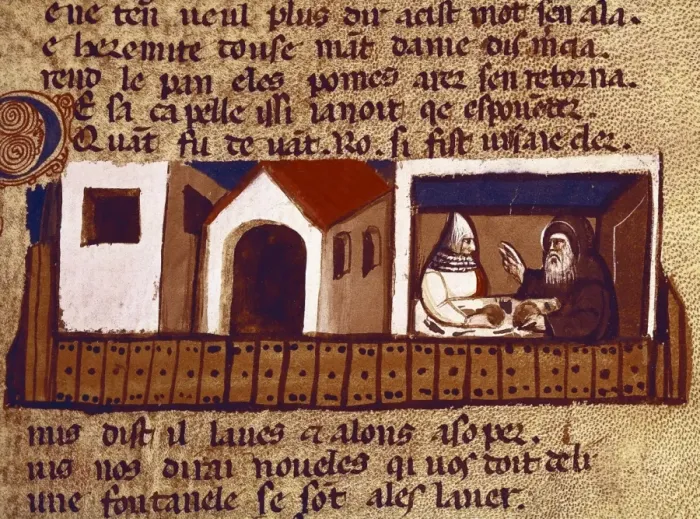 ene teñ ueul plus dir acist mot sen ala.
e heremite dame dis
rend le pan eles pomes arer sen retorna.
DE sa capelle issi ianoit qe espoueter.
Quãt fu de uãt. Ro. si fist uisaie cler.
mis dist il laues & alons asoper.
uis nos dirai noueles qi uos doit deli
une fontanele se sõt ales lauer.